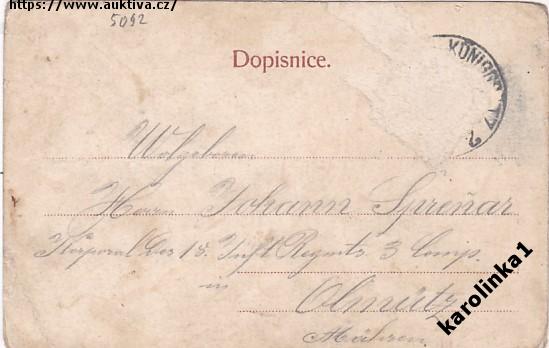 https://www.auktiva.cz/
5092
Dopisnice.
KÖNIGG
Wolgeboren
Herrn Johann Spreñar
Korporal des 18. Inft Regmts 3 Comp.
in
Olmütz
Mähren
karolinka1